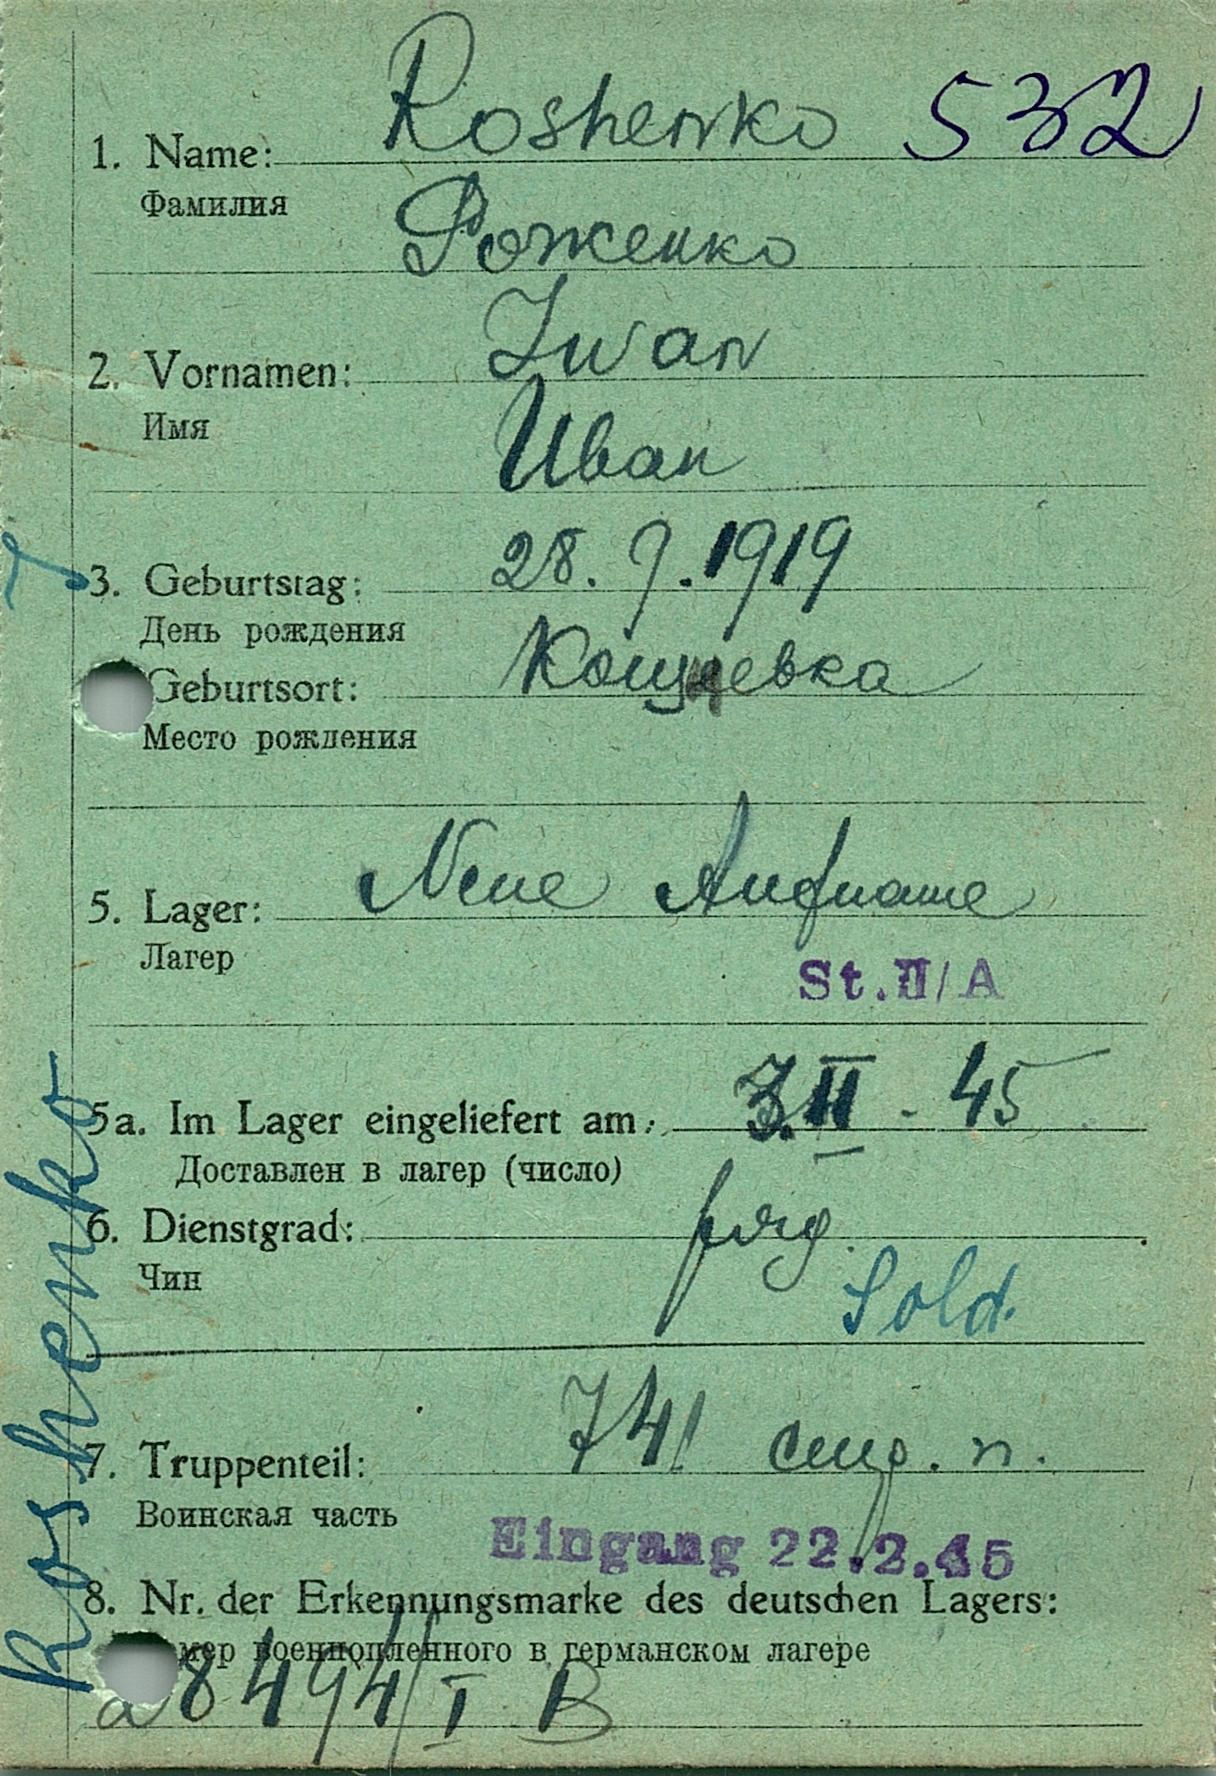 Roshenko 532
1. Name:
Фамилия
Роженко
Iwan
2. Vornamen:
Имя
Иван
3. Geburtstag: 28. 9. 1919
День рождения
Geburtsort:
Место рождения
5. Lager: Neue Aufname
Лагер
St. II/A
5a. Im Lager eingeliefert am: 3. II - 45
Доставлен в лагер (число)
6. Dienstgrad:
Чин
Sold.
7. Truppenteil: 741 п.
Воинская часть
Eingang 22.2.45
8. Nr. der Erkennungsmarke des deutschen Lagers:
мер военнопленного в германском лагере
8494/ I B
Roshenko